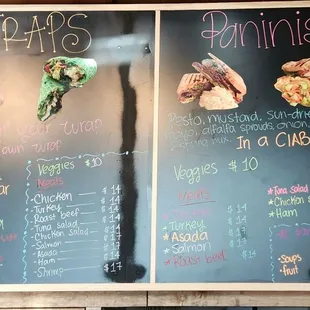 RAPS
Wrap
own wrap
Veggies $10
Meats
Chicken $14
Turkey $14
Roast beef $14
Tuna salad $14
Chicken salad $14
Salmon $17
Asada $14
Ham $14
Shrimp $17
Paninis
Pesto, mustard, sun-drie
mayo, alfalfa sprouts, onion
In a CIAB
Veggies $10
Meats
$14
Turkey $14
Asada
Salmon $17
Roast beef $14
Tuna salad
Chicken s
Ham
Soups
Fruit